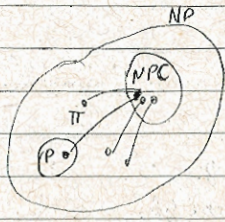 NP
NPC
π
P